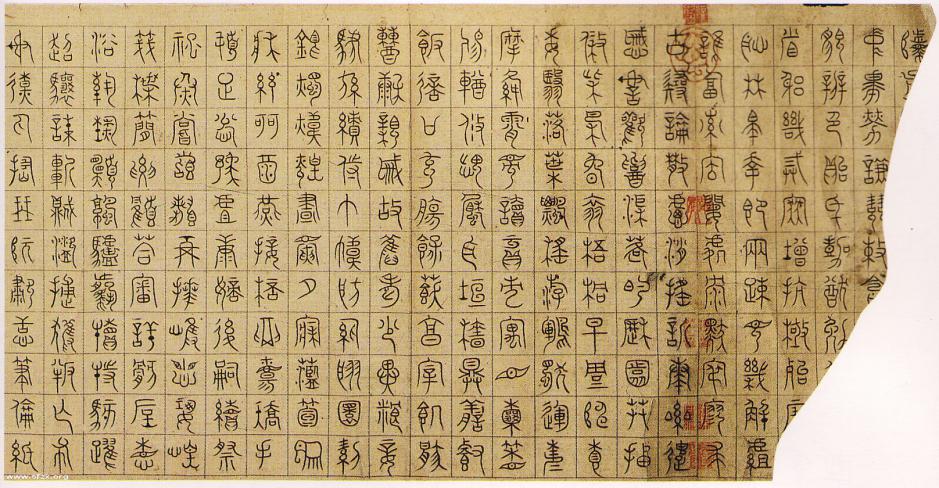 庶幾
中庸勞謙謹敕聆
貌辨色貽厥嘉猷勉
省躬譏誡寵增抗極殆辱
恥林皋幸即兩疏見機解組
誰逼索居閑處沉默寂寥求
古尋論散慮逍遙欣奏累遣
慼謝歡招渠荷的歷園莽抽
條枇杷晚翠梧桐早凋陳根
委翳落葉飄颻游鯤獨運凌
摩絳霄耽讀玩市寓目囊箱
易輶攸畏屬耳垣牆具膳餐
飯適口充腸飽飫烹宰飢厭
糟糠親戚故舊老少異糧妾
御績紡侍巾帷房紈扇圓潔
銀燭煒煌晝眠夕寐藍筍象
床弦歌酒讌接杯舉觴矯手
頓足悅豫且康嫡後嗣續祭
祀烝嘗稽顙再拜悚懼恐惶
牋牒簡要顧答審詳骸垢想
浴執熱願涼驢騾犢特駭躍
超驤誅斬賊盜捕獲叛亡布
射遼丸嵇琴阮嘯恬筆倫紙